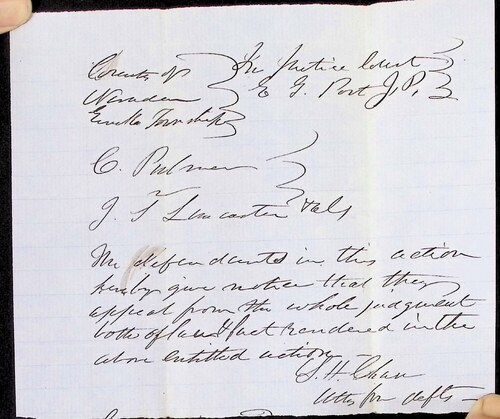 County of } In Justice Court
Nevada } E. G. Port J. P.
Eureka Township }
C. Pulman }
vs
J. T. Lancaster et als
The defendants in this action
hereby give notice that they
appeal from the whole judgment
both of law & fact rendered in the
above entitled action
S. H. Chase
Atty for defts